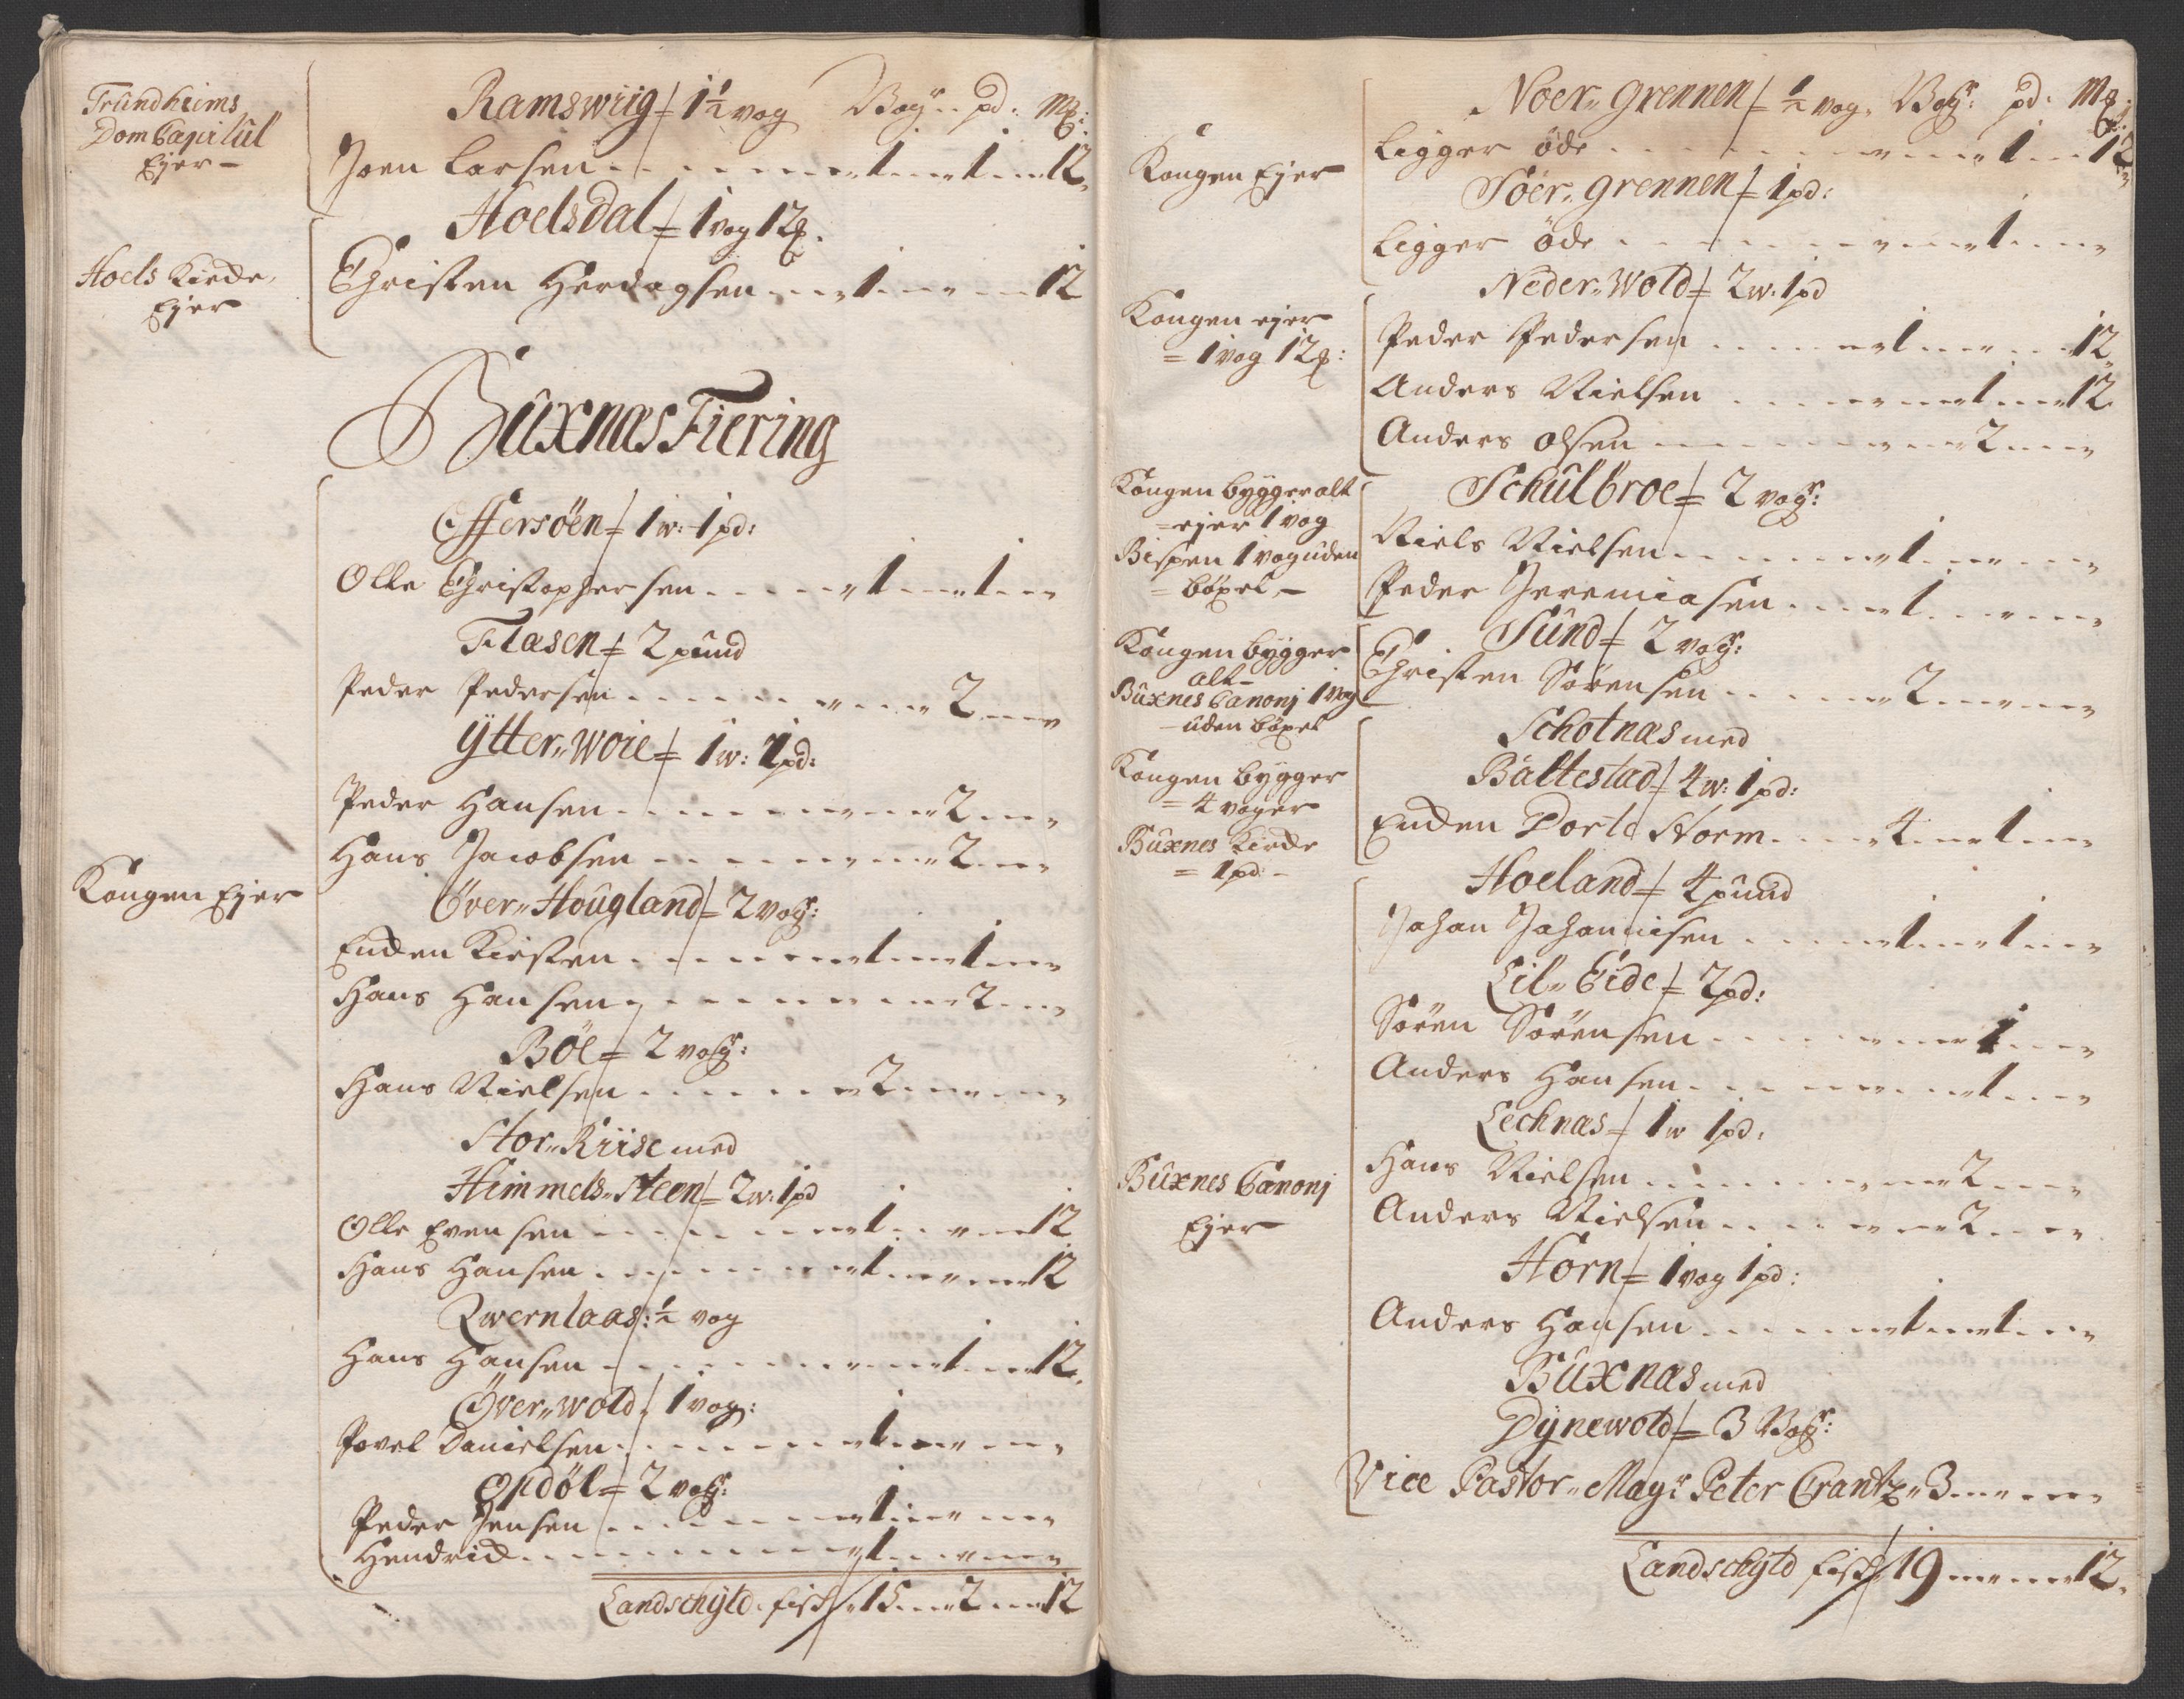 Trundheims
Dom Capitül
Ejer -
Ramswiig = 1½ vog Vogr. pd: Mk:
Joen Larsen 1 1 12
Hoelsdal = 1 vog 12 
Hoels Kircke
Ejer
Christen Herdagsen 1 12
Buxnæs Fiering
Effersöen = 1 w: 1 pd:
Olle Christophersen 1 1
Flasen = 2 pund
Peder Pedersen 2
Ytter Woie = 1 w: 1 pd:
Peder Hansen 2
Hans Jacobsen 2
Kongen Ejer
Över Hougland = 2 vogr:
Encken Kirsten 1 1
Hans Hansen 2
Böe = 2 vogr:
Hans Nielsen 2
Stor Riise med
Himmels Steen = 2 w: 1 pd
Olle Evensen 1 12
Hans Hansen 1 12
Qwernlaas: ½ vog
Hans Hansen 1 12
Över wold 1 vog:
Povel Danielsen 1
Opdöl = 2 vogr:
Peder Jensen 1
Hendrick 1
Landschyld fisk 15 2 12
Noer grennen = ½ vog. Vogr: pd: Mk:
Kongen Ejer
Ligger öde 1 12
Söer grennen = 1 pd:
Ligger öde 1
Neder Wold = 2 w. 1 pd
Kongen ejer
= 1 vog 12 :
Peder Pedersen 1 12
Anders Nielsen 1 12
Anders Olsen 2
Kongen bygger alt
= ejer 1 vog
Bispen 1 vog uden
= böxel -
Schülbroe = 2 vogr:
Niels Nielsen 1
Peder Jeremiasen 1
Kongen bygger
alt -
Büxnes Canonj 1 vog
- uden böxel
Sund = 2 vogr:
Christen Sörensen 2
Kongen bygger
= 4 voger
Büxnes Kircke
= 1 pd: -
Schotnæs med
Baltestad = 4 w: 1 pd:
Encken Dorte Storm 4 1
Hoeland = 4 pund
Johan Johannisen 1 1
Lil Eide = 2 pd:
Sören Sörensen 1
Anders Hansen 1
Lechnæs = 1 w 1 pd:
Hans Nielsen 2
Büxnes Canonj
Ejer
Anders Nielsen 2
Horn = 1 vog 1 pd:
Anders Hansen 1 1
Büxnæs med
Dynewold = 3 Vogr:
Vice Pastor Magr Peter Crantz 3
Landschyld fisk 19 12